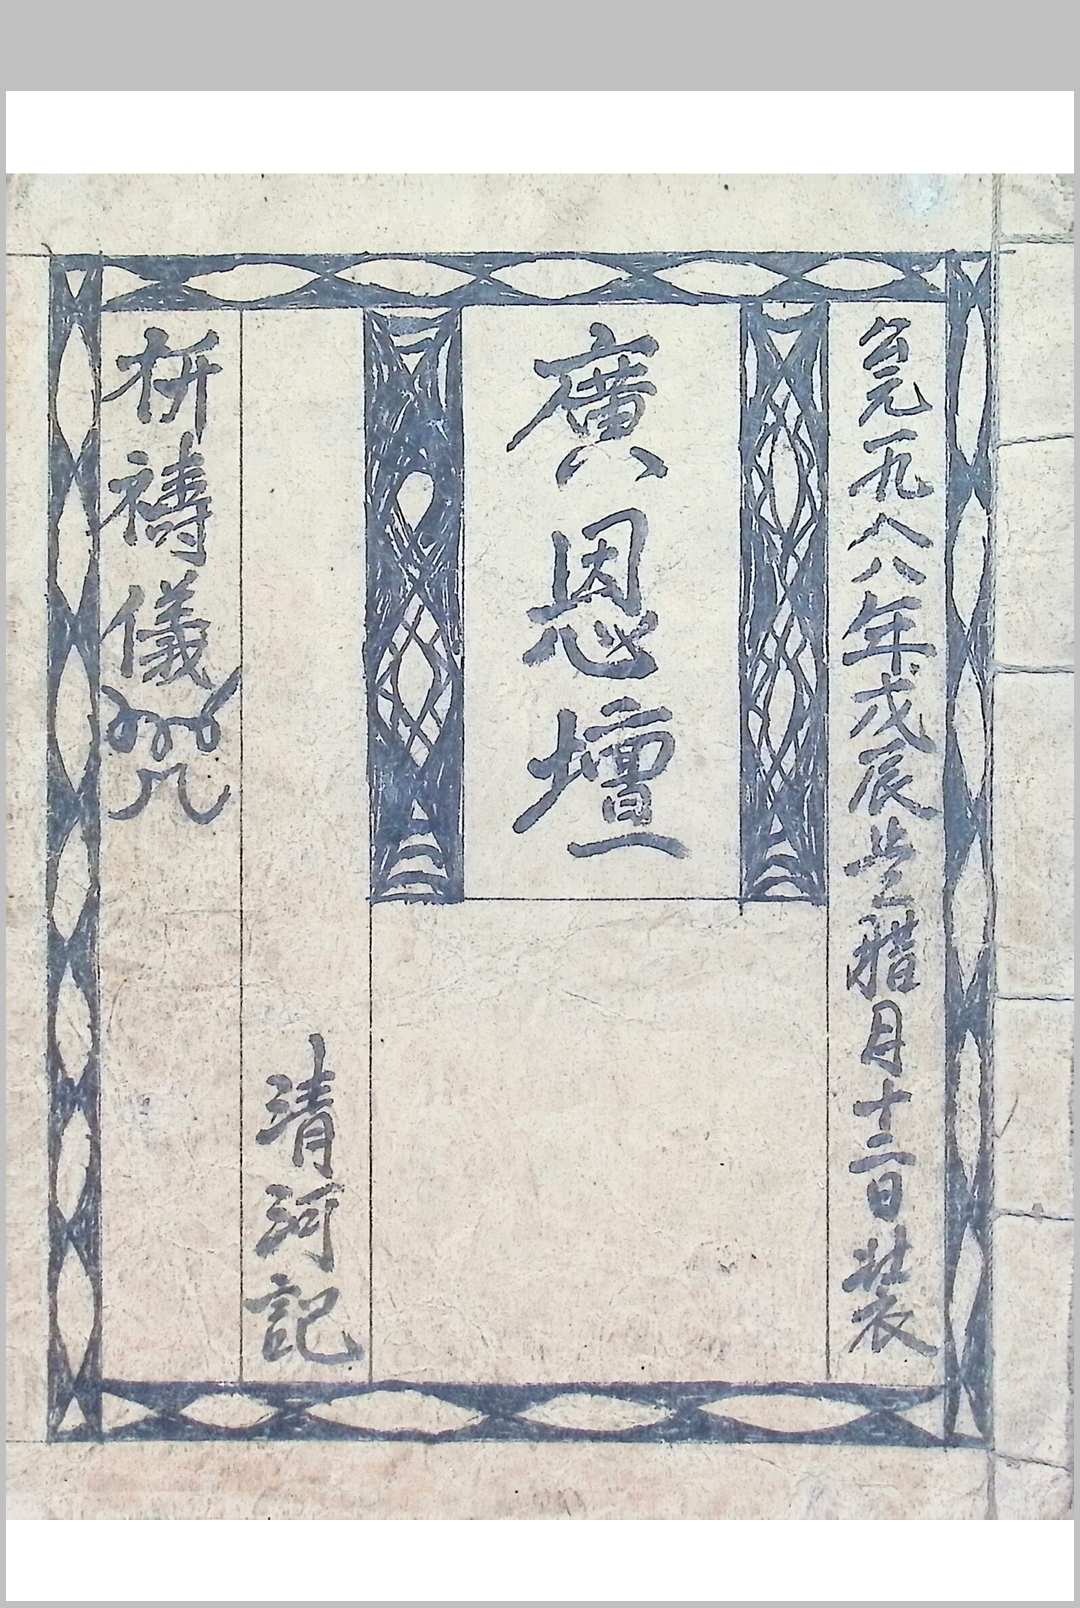 公元一九八八年戊辰岁腊月十二日装
廣恩壇
清河記
祈禱儀